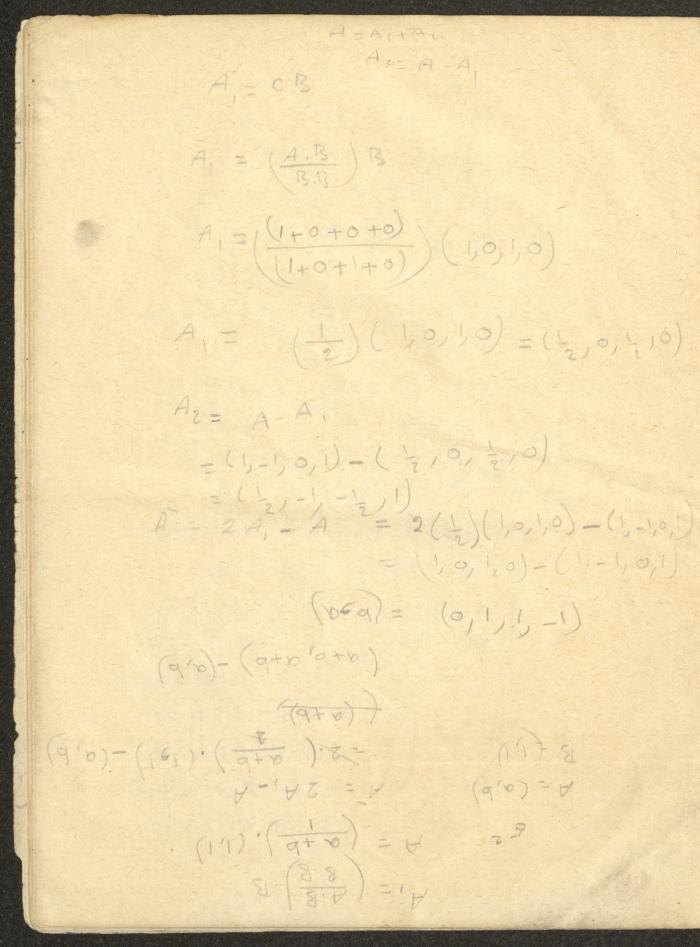 A = A₁ + A₂
A₂ = A - A₁
A₁ = cB
A₁ = (A.B / B.B) B
A₁ = ((1+0+0+0) / (1+0+1+0)) (1,0,1,0)
A₁ = (1/2) (1,0,1,0) = (1/2, 0, 1/2, 0)
A₂ = A - A₁
= (1,-1,0,1) - (1/2, 0, 1/2, 0)
= (1/2, -1, -1/2, 1)
A = 2A₁ - A = 2(1/2)(1,0,1,0) - (1,-1,0,1)
= (1,0,1,0) - (1,-1,0,1)
= (0,1,1,-1)
A₁ = (A.B / B.B) B
E² A = (a+b / 1) . (1,1)
A = (a,b) A = 2A₁ - A
B = (1,1) = 2.(a+b / 2) . (1,1) - (a,b)
((a+b)
(a+b, a+b) - (a,b)
(b,a)